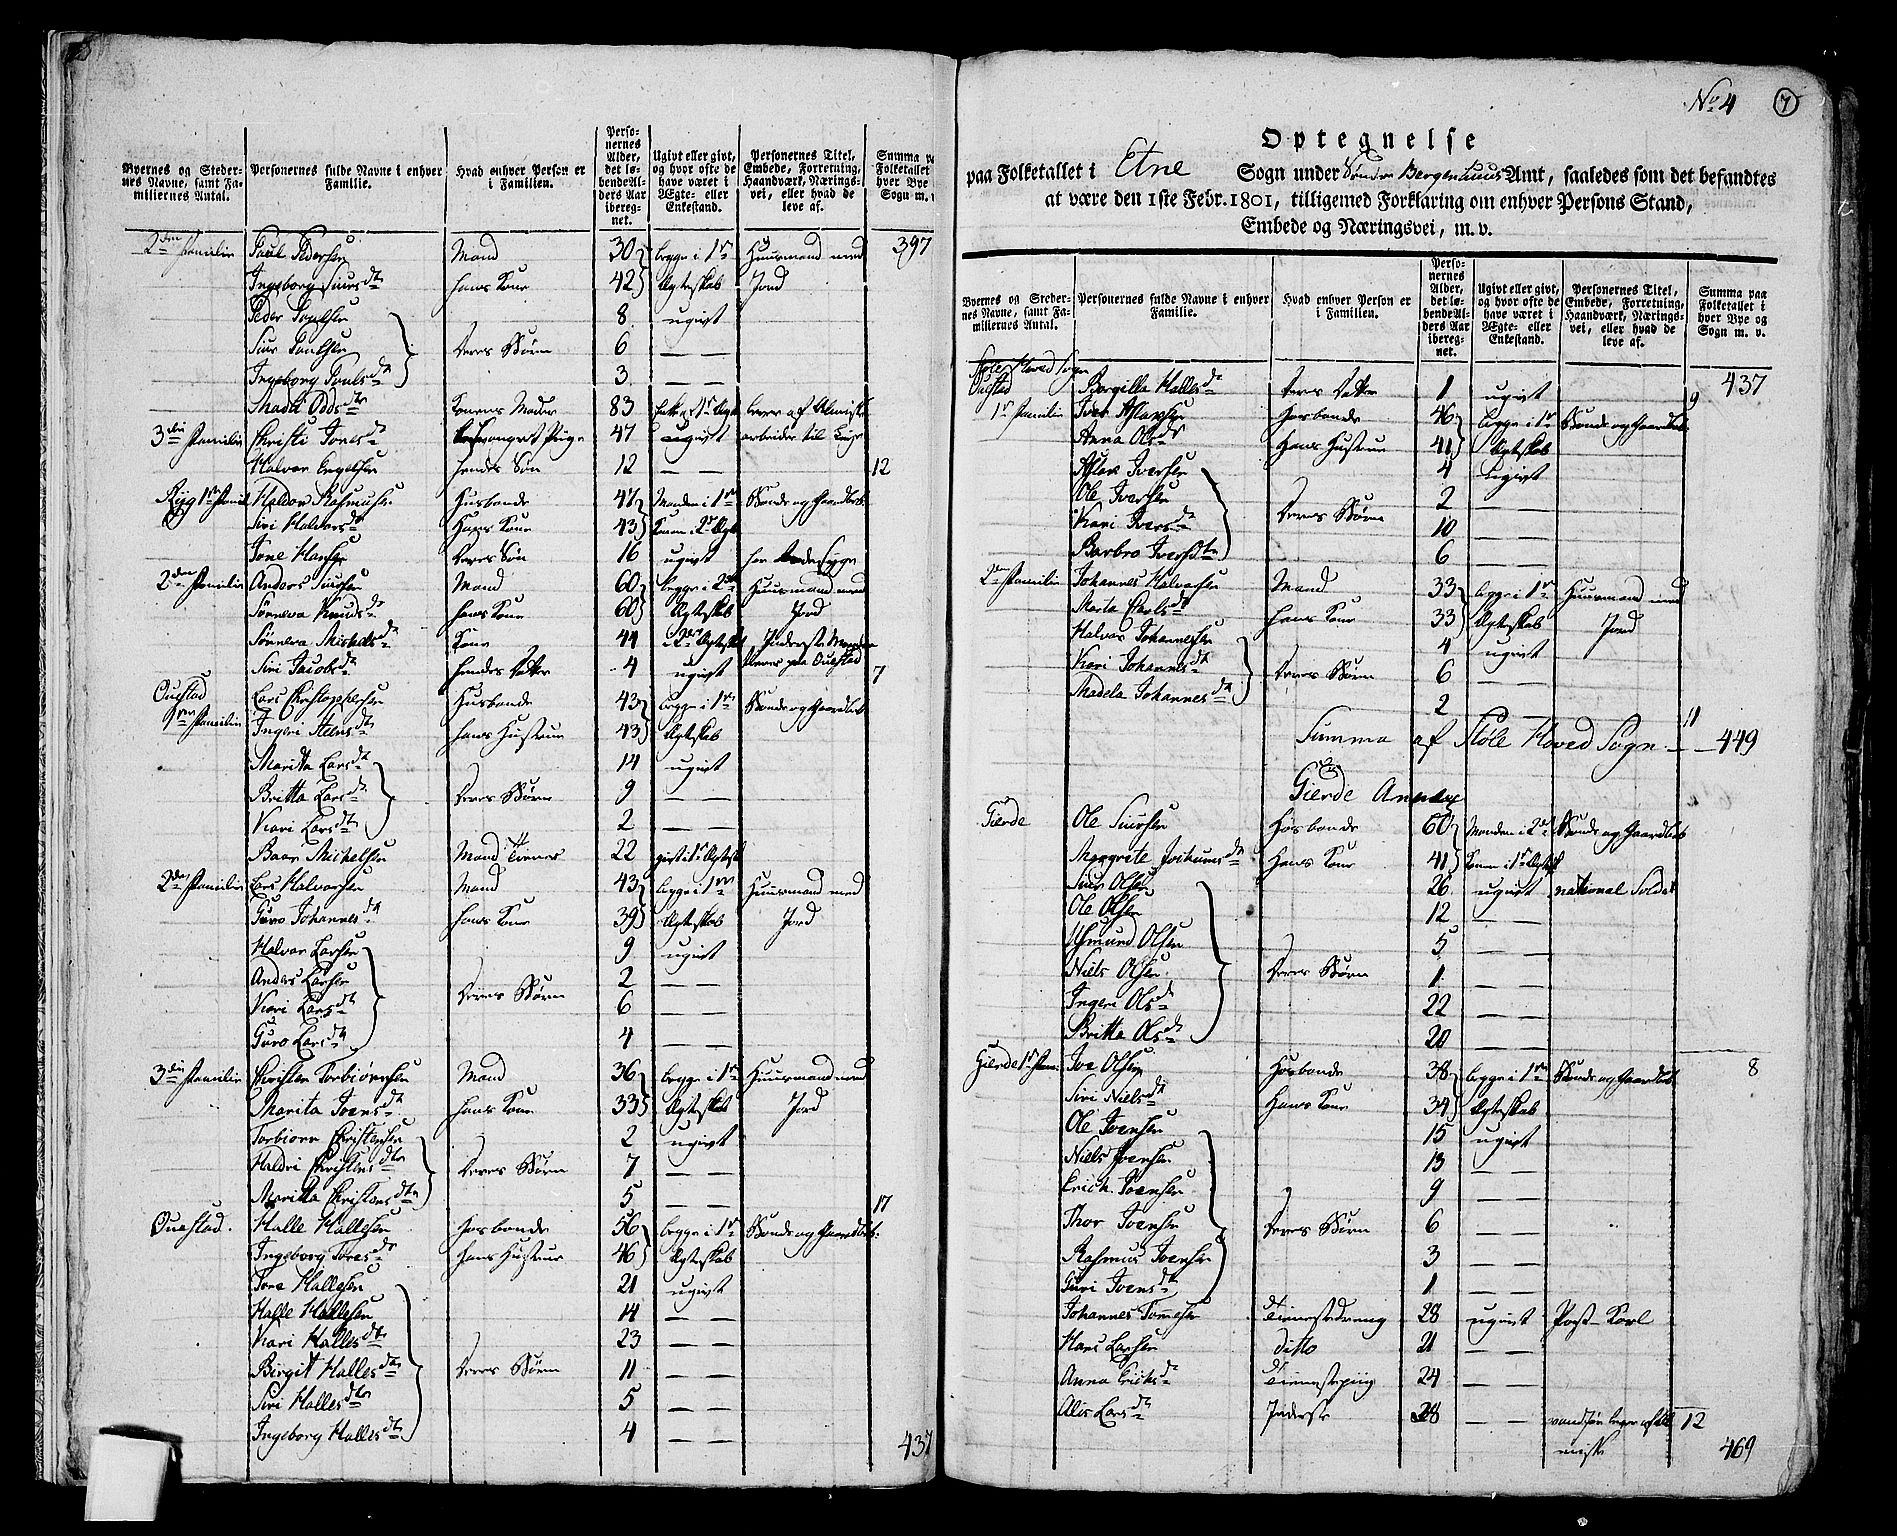 Byernes og Steder-
nes Navne, samt Fa-
miliernes Antal.
Personernes fulde Navne i enhver
Familie.
Hvad enhver Person er
i Familien.
Perso-
nernes
Alder,
det lø-
bende Al-
ders Aar
ibereg-
net.
Ugivt eller givt,
og hvor ofte de
have været i
Ægte- eller
Enkestand.
Personernes Titel,
Embede, Forretning,
Haandværk, Nærings-
vei, eller hvad de
leve af.
Summa paa
Folketallet
hver Bye
Sogn m.
2den Familie Paul Pedersen Mand 30 begge i 1te Huusmand med 397
Ingeborg Siursdt hans Kone 42 Ægteskab Jord
Peder Poulsen 8 ugivt
Siur Poulsen deres Børn 6 — —
Ingeborg Poulsdt 3 — —
Madli Oddsdtr Konens Moder 83 lever af Almisse
3die Familie Christi Jonesdt 47 ugivt arbeider til
Halvor Engelsen hendes Søn 12 — — 12
Rygg 1te Famil Haldor Rasmusen Husbonde 47 Manden i 1te Bonde og Gaardbeb
Siri Halvorsdt Hans Kone 43 Konen i 2t Ægt
Tone Hansen deres Søn 16 ugivt
2den Familie Anders Siursen Mand 60 begge i 2det Huusmand med
Sønneva Knudsdt hans Kone 60 Ægteskab Jord
Sønneva Michelsdt Kone 44 2det Ægteskab Inderste
Siri Jacobsdt hendes Datter 4 ugivt paa Ouestad 7
Ouestad Lars Christophersen Husbonde 43 begge i 1te Bonde og Gaardbeb
1te Familie Ingeri Steensdtr hans Hustrue 43 Ægteskab
Maritta Larsdt 14 ugivt
Britta Larsdt deres Børn 9 — —
Kari Larsdtr 2 — —
Baar Michelsen Mand Tienes 22 givt i 1t Ægtesk
2den Familie Lars Halvorsen Mand 43 begge i 1te Huusmand med
Guro Johannesdt hans Kone 39 Ægteskab Jord
Halvor Larsen 9 ugivt
Anders Larsen 2 — —
Kari Larsdt deres Børn 6 — —
Guro Larsdt 4 — —
3die Familie Christen Torbiørnsen Mand 36 begge i 1te Huusmand med
Marita Ivensdt hans Kone 33 Ægteskab Jord
Torbiørn Christensen 2 ugivt
Haldri Christensdtr deres Børn 7 — —
Maritta Christensdtr 5 — — 17
Ouestad. Halle Hallesen Hosbonde 56 begge i 1te Bonde og Gaardbeb:
Ingeborg Toresdr hans Hustrue 46 Ægteskab
Tore Hallesen 21 ugivt
Halle Hallesen 14 — —
Kari Hallesdtr 23 — —
Birgit Hallesdtr deres Børn 11 — —
Siri Hallesdtr 5 — —
Ingeborg Hallesdt 4 — — 437
No 4 7
Optegnelse
paa Folketallet i Etne Sogn under Søndre Bergenhuus Amt, saaledes som det befandtes
at være den 1ste Febr. 1801, tilligemed Forklaring om enhver Persons Stand,
Embede og Næringsvei, m. v.
Byernes og Steder-
nes Navne, samt Fa-
miliernes Antal.
Personernes fulde Navne i enhver
Familie.
Hvad enhver Person er
i Familien.
Perso-
nernes
Alder,
det lø-
bende Al-
ders Aar
ibereg-
net.
Ugivt eller givt,
og hvor ofte de
have været i
Ægte- eller
Enkestand.
Personernes Titel,
Embede, Forretning,
Haandværk, Nærings-
vei, eller hvad de
leve af.
Summa paa
Folketallet i
hver Bye og
Sogn m. v.
Støle Hoved Sogn
Ouestad Borgilla Hallesdt deres Datter 1 ugivt 9 437
1t Familie Iver Aslaksen Hosbonde 46 begge i 1te Bonde og Gaardbeb
Anna Olsdt Hans Hustrue 41 Ægteskab
Aslak Iversen 4 Ugivt
Ole Iversen 2 — —
Kari Iversdt deres Børn 10 — —
Barbro Iversdtr 6 — —
2de Familie Johannes Halvorsen Mand 33 begge i 1te Huusmand med
Marta Carlsdt hans Kone 33 Ægteskab Jord
Halvor Johannesen 4 ugivt
Kari Johannesdt deres Børn 6 — —
Madela Johannesdt 2 — — 11
Summa af Støle Hoved Sogn — 449
Gierde Annex
Gierde Ole Siursen Hosbonde 60 Manden i 2det Bonde og Gaardbeb
Margrete Jochumsdt Hans Kone 41 Konen i 1t Ægtesk
Siur Olsen 26 ugivt national Soldat
Ole Olsen 12 — —
Asmund Olsen 5 — —
Niels Olsen deres Børn 1 — —
Ingeri Olsd 22 — —
Britta Olsdt 20 — —
Gierde 1t Fam: Ive Olsen Hosbonde 38 begge i 1te Bonde og Gaardbeb 8
Siri Nielsdt Hans Kone 34 Ægteskab
Ole Ivensen 15 ugivt
Niels Ivensen 13 — —
Erich Ivensen 9 — —
Thor Ivensen deres Børn 6 — —
Rasmus Ivensen 3 — —
Guri Ivensdt 1 — —
Johannes Tommesen Tienestedreng 28 ugivt Post-Karl
Hans Larsen ditto 21 — —
Anna Erichsdt Tienestepiig 24 — —
Alis Larsdt Inderste 28 — — vanfør lever af All 12
misse 469